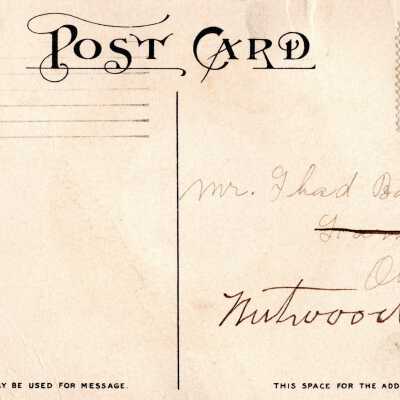 POST CARD
Mr. Thad
Nutwood
AY BE USED FOR MESSAGE.
THIS SPACE FOR THE ADD